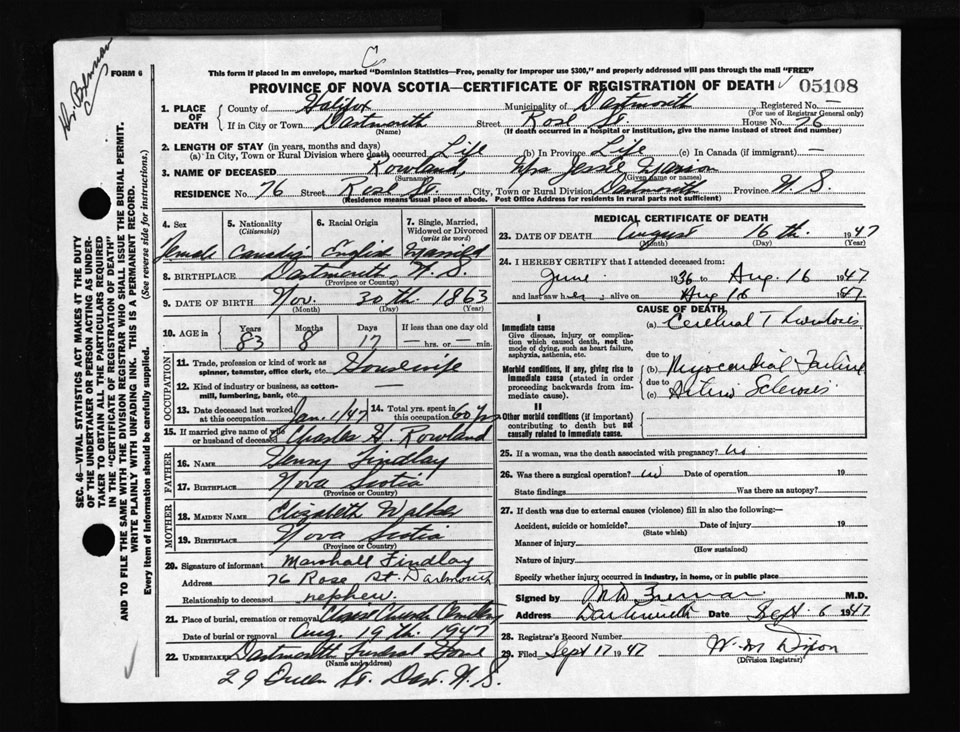 FORM 6
This form if placed in an envelope, marked “Dominion Statistics—Free, penalty for improper use $300,” and properly addressed will pass through the mail “FREE”
PROVINCE OF NOVA SCOTIA—CERTIFICATE OF REGISTRATION OF DEATH 05108
SEC. 46—VITAL STATISTICS ACT MAKES IT THE DUTY
OF THE UNDERTAKER OR PERSON ACTING AS UNDER-
TAKER TO OBTAIN ALL THE PARTICULARS REQUIRED
IN THE “CERTIFICATE OF REGISTRATION OF DEATH”
AND TO FILE THE SAME WITH THE DIVISION REGISTRAR WHO SHALL ISSUE THE BURIAL PERMIT.
WRITE PLAINLY WITH UNFADING INK. THIS IS A PERMANENT RECORD.
Every item of information should be carefully supplied. (See reverse side for instructions.)
1. PLACE OF DEATH
County of Halifax Municipality of Dartmouth Registered No. —
(For use of Registrar General only)
If in City or Town Dartmouth Street Rose St. House No. 76
(Name) (If death occurred in a hospital or institution, give the name instead of street and number)
2. LENGTH OF STAY (in years, months and days)
(a) In City, Town or Rural Division where death occurred Life (b) In Province Life (c) In Canada (if immigrant) —
3. NAME OF DECEASED Rowland, Mrs Jessie Marion
(Surname) (Given name or names)
RESIDENCE No. 76 Street Rose St. City, Town or Rural Division Dartmouth Province N. S.
(Residence means usual place of abode. Post Office Address for residents in rural parts not sufficient)
4. Sex
Female
5. Nationality
(Citizenship)
Canadian
6. Racial Origin
English
7. Single, Married,
Widowed or Divorced
(write the word)
Married
8. BIRTHPLACE Dartmouth, N. S.
(Province or Country)
9. DATE OF BIRTH Nov. 30th. 1863
(Month) (Day) (Year)
10. AGE in
Years Months Days If less than one day old
83 8 17 — hrs. or — min.
OCCUPATION
11. Trade, profession or kind of work as
spinner, teamster, office clerk, etc. Housewife
12. Kind of industry or business, as cotton-
mill, lumbering, bank, etc. —
13. Date deceased last worked
at this occupation Jan. 1/47
14. Total yrs. spent in
this occupation 60 yrs
15. If married give name of wife
or husband of deceased Charles H. Rowland
FATHER
16. NAME Henry Findlay
17. BIRTHPLACE Nova Scotia
(Province or Country)
MOTHER
18. MAIDEN NAME Elizabeth Walker
19. BIRTHPLACE Nova Scotia
(Province or Country)
20. Signature of informant Marshall Findlay
Address 76 Rose St. Dartmouth
Relationship to deceased nephew.
21. Place of burial, cremation or removal Christ Church Cemetery
Date of burial or removal Aug. 19th. 1947
22. UNDERTAKER Dartmouth Funeral Home
(Name and address)
29 Queen St. Dart. N. S.
MEDICAL CERTIFICATE OF DEATH
23. DATE OF DEATH August 16th. 1947
(Month) (Day) (Year)
24. I HEREBY CERTIFY that I attended deceased from:
June 1936 to Aug. 16 1947
and last saw her alive on Aug 16 1947
CAUSE OF DEATH
I
Immediate cause
Give disease, injury or complica-
tion which caused death, not the
mode of dying, such as heart failure,
asphyxia, asthenia, etc.
(a) Cerebral Thrombosis
due to
Morbid conditions, if any, giving rise to
immediate cause (stated in order
proceeding backwards from im-
mediate cause).
(b) Myocardial Failure
due to
(c) Arterio Sclerosis
II
Other morbid conditions (if important)
contributing to death but not
causally related to immediate cause.
25. If a woman, was the death associated with pregnancy? no
26. Was there a surgical operation? no Date of operation 19
State findings Was there an autopsy?
27. If death was due to external causes (violence) fill in also the following:—
Accident, suicide or homicide? Date of injury 19
(State which)
Manner of injury
(How sustained)
Nature of injury
Specify whether injury occurred in industry, in home, or in public place
Signed by M.D.
Address Dartmouth Date Sept. 6 1947
28. Registrar's Record Number
29. Filed Sept 17 1947 W. M. Dixon
(Division Registrar)